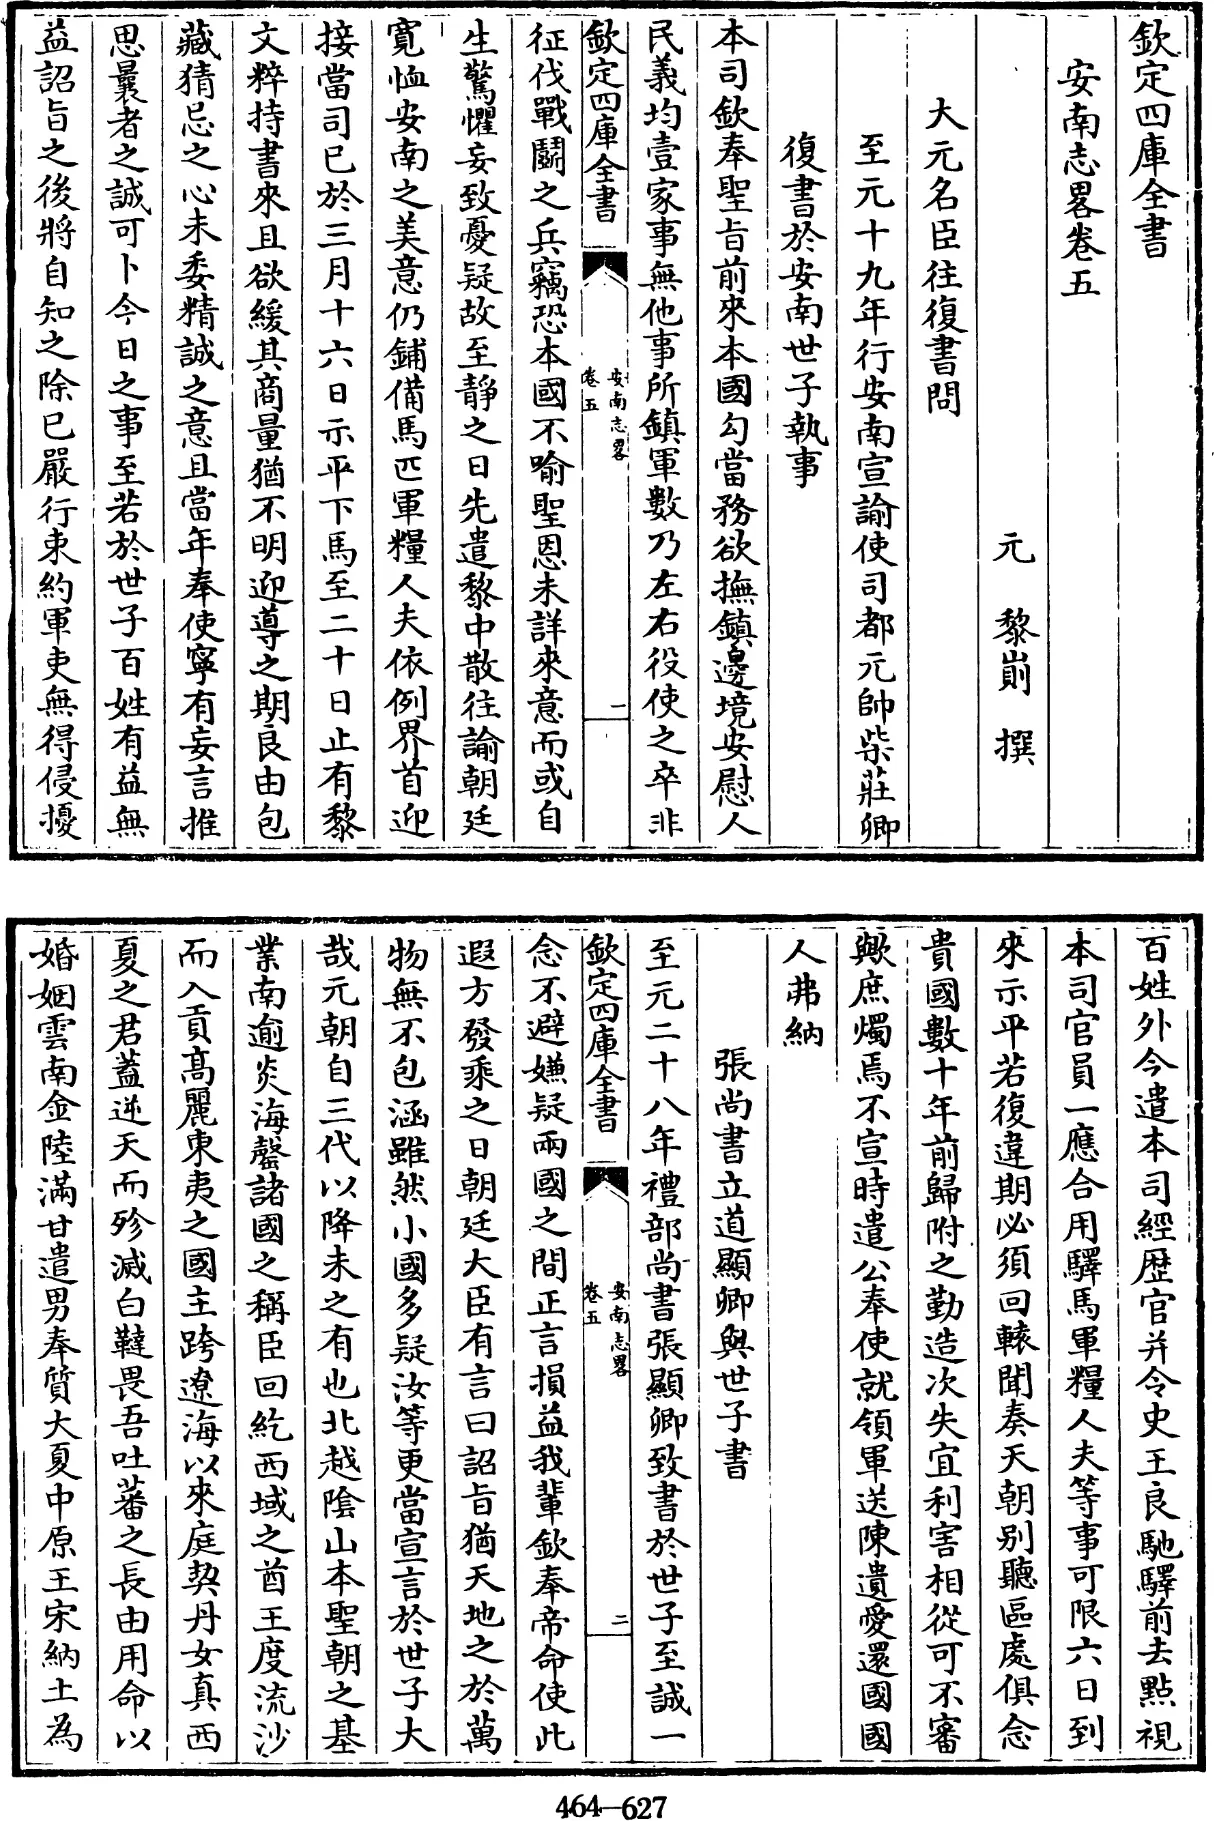 欽定四庫全書
安南志畧卷五
元 黎崱 撰
大元名臣往復書問
至元十九年行安南宣諭使司都元帥柴莊卿
復書於安南世子執事
本司欽奉聖旨前來本國勾當務欲撫鎮邊境安慰人
民義均壹家事無他事所鎮軍數乃左右役使之卒非
欽定四庫全書
安南志畧
卷五
一
征伐戰鬭之兵竊恐本國不喻聖恩未詳來意而或自
生驚懼妄致憂疑故至靜之日先遣黎中散往諭朝廷
寬恤安南之美意仍鋪備馬匹軍糧人夫依例界首迎
接當司已於三月十六日示平下馬至二十日止有黎
文粹持書來且欲緩其商量猶不明迎導之期良由包
藏猜忌之心未委精誠之意且當年奉使寧有妄言推
思曩者之誠可卜今日之事至若於世子百姓有益無
益詔旨之後將自知之除已嚴行束約軍吏無得侵擾
百姓外今遣本司經歴官并令史王良馳驛前去點視
本司官員一應合用驛馬軍糧人夫等事可限六日到
來示平若復違期必須回轅聞奏天朝别聽區處俱念
貴國數十年前歸附之勤造次失宜利害相從可不審
歟庶燭焉不宣時遣公奉使就領軍送陳遺愛還國國
人弗納
張尚書立道顯卿與世子書
至元二十八年禮部尚書張顯卿致書於世子至誠一
欽定四庫全書
安南志畧
卷五
二
念不避嫌疑兩國之間正言損益我輩欽奉帝命使此
遐方發乘之日朝廷大臣有言曰詔旨猶天地之於萬
物無不包涵雖然小國多疑汝等更當宣言於世子大
哉元朝自三代以降未之有也北越陰山本聖朝之基
業南逾炎海罄諸國之稱臣回紇西域之酋王度流沙
而入貢髙麗東夷之國主跨遼海以來庭契丹女真西
夏之君蓋逆天而殄滅白韃畏吾吐蕃之長由用命以
婚姻雲南金陸滿甘遣男奉質大夏中原王宋納土為
464—627